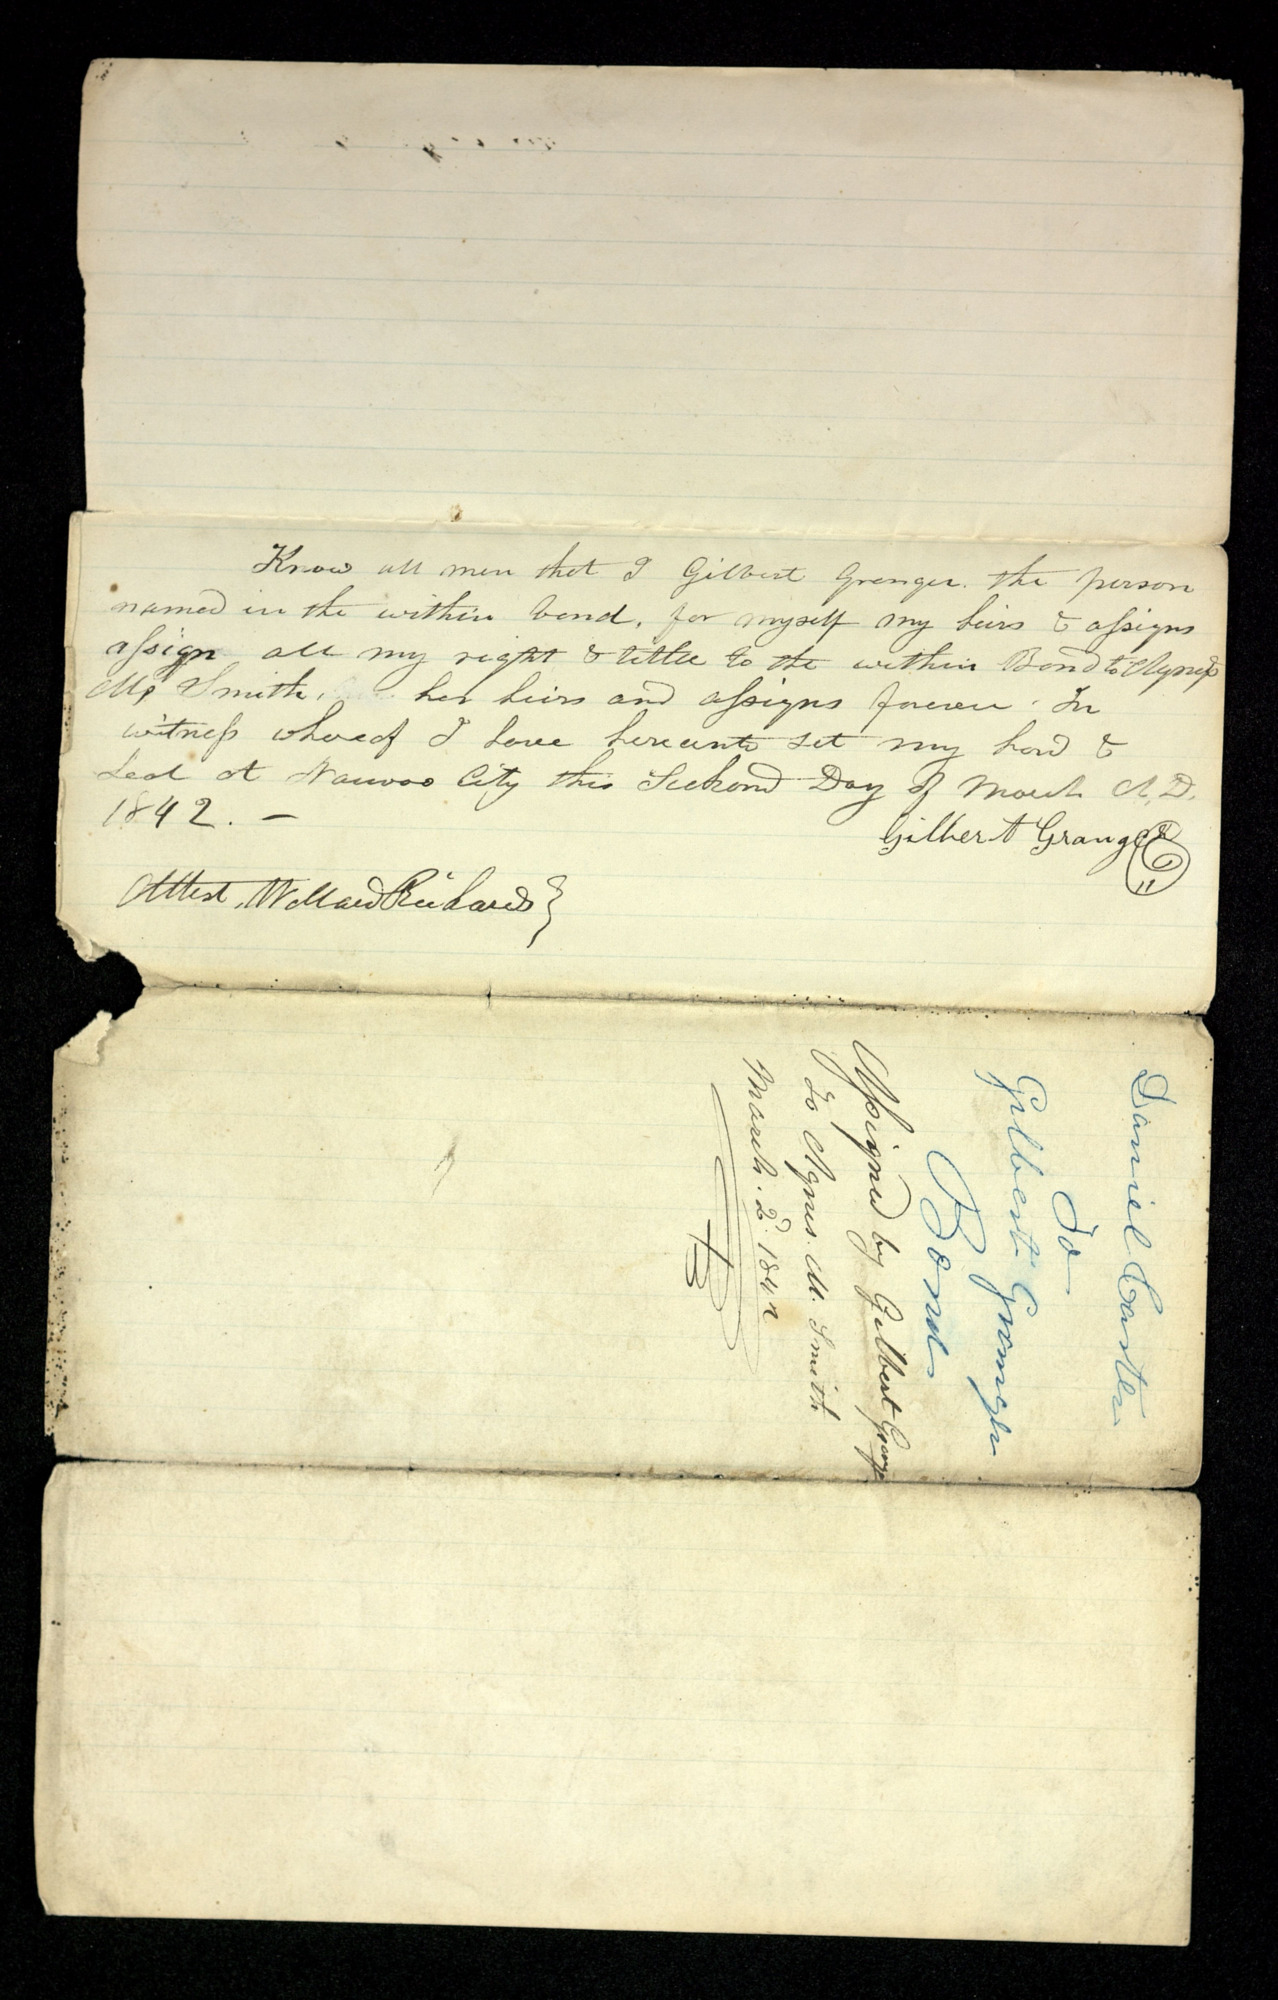 Know all men that I Gilbert Granger. the person
named in the within bond, for myself my heirs & assigns
assign all my right & tittle to the within Bond to Agness
M, Smith, her heirs and assigns forever. In
witness whereof I have hereunto set my hand &
seal at Nauvoo City this Seckond Day of March A.D.
1842. —
Gilbert Granger
Attest, Willard Richards }
Daniel Carter
To
Gilbert Granger
Bond
Assigned by Gilbert Grang
To Agnes. M. Smith
March. 2d. 1842